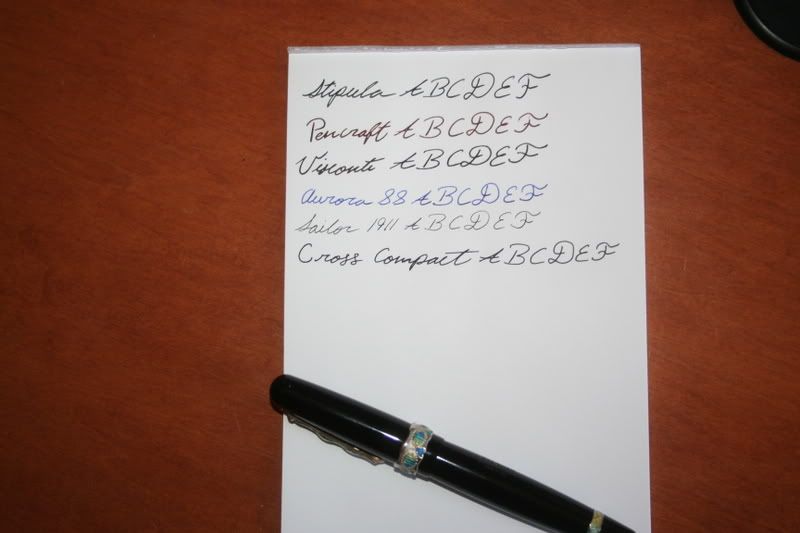 Stipula ABCDEF
Pencraft ABCDEF
Visconti ABCDEF
Aurora 88 ABCDEF
Sailor 1911 ABCDEF
Cross Compact ABCDEF